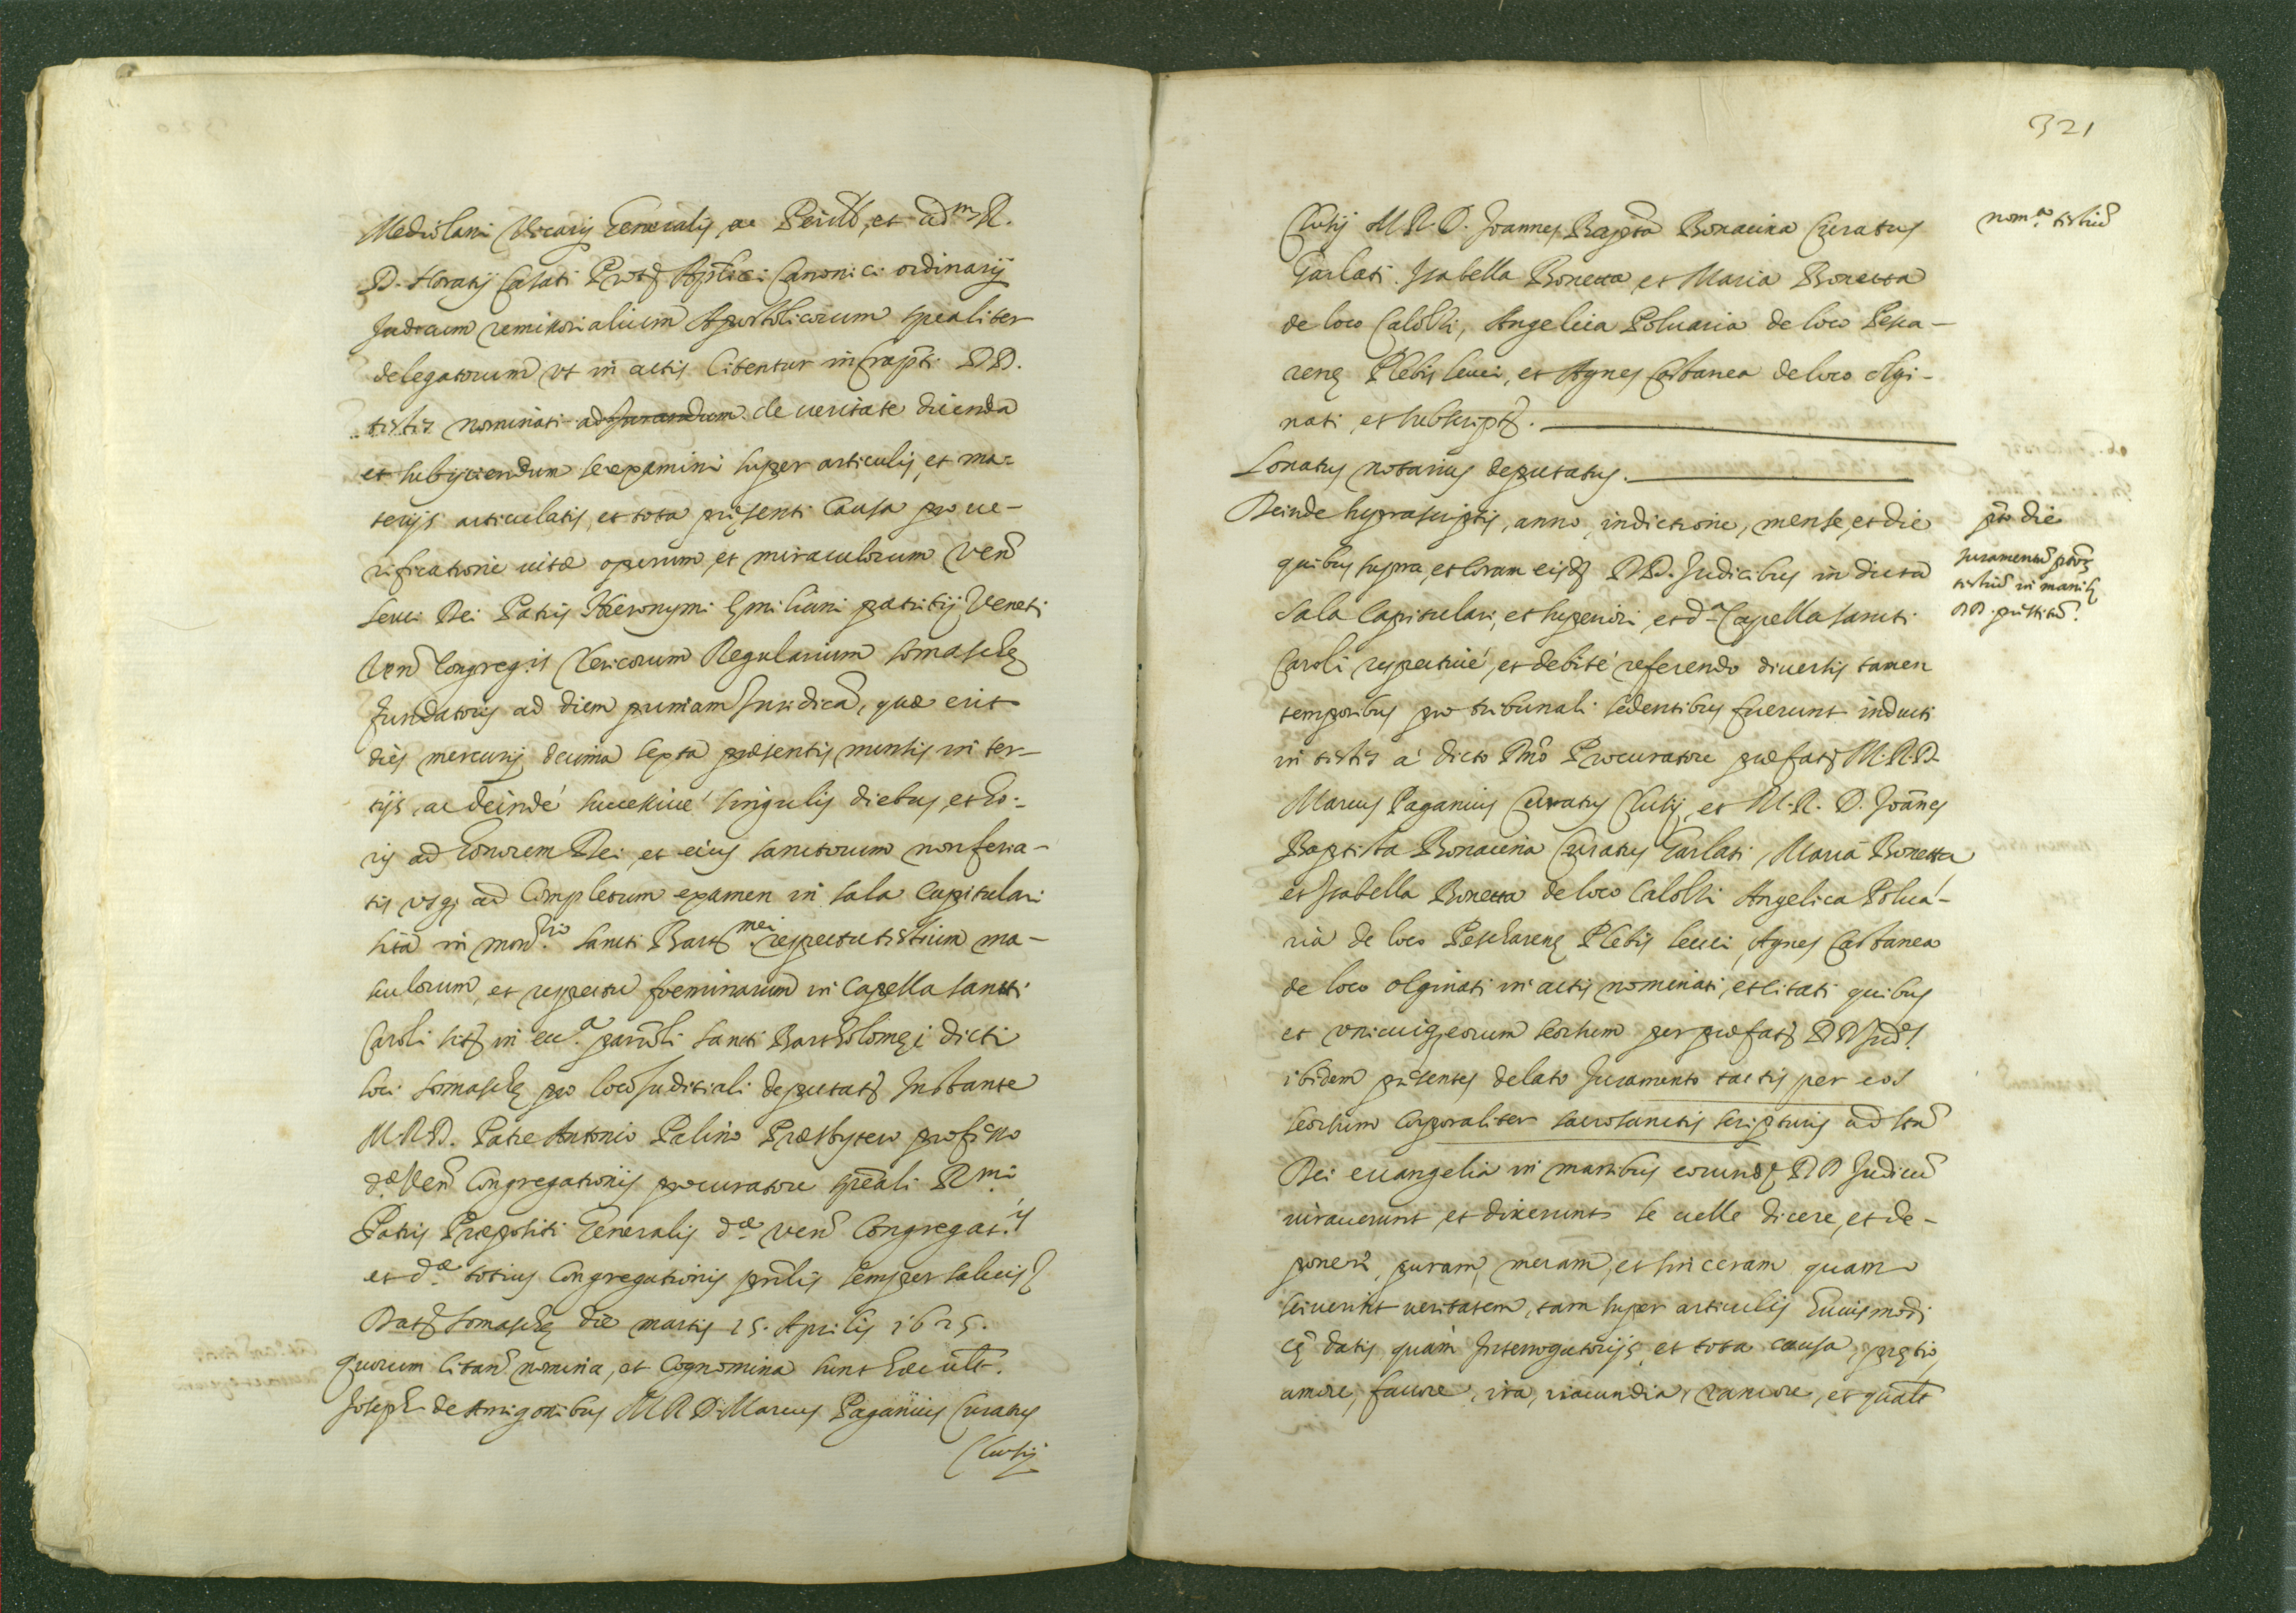 Mediolani Vicarij Generalis, ac Penitt. et adm. R.
D. Horatij Casati Prot. Aplici Canonici ordinarij
Judicum remissorialium Apostolicorum spealiter
delegatorum ut in actis Citentur infrapti DD.
testes nominati ad Jurandum de veritate dicenda
et subijciendum se examini super articulis, et ma-
terijs articulatis, et tota pñsenti Causa pro ve-
rificatione vitæ operum, et miraculorum Ven.
Servi Dei Patris Hieronymi Emiliani patritij Veneti
Ven. Congreg.is Clericorum Regularium somaschę
fundatoris ad diem primam Juridicã, quæ erit
dies mercurij decima sexta præsentis mensis in ter-
tijs, ac deindé successivé singulis diebus, et ho-
ris ad honorem Dei, et eius sanctorum non feria-
tis usq; ad Completum examen in sala Capitulari
sita in mon.rio sancti Bart.mei respectu testium ma-
sculorum, et respectu foeminarum in Capella sancti
Caroli sit. in ecc.a parrõli sancti Bartholomęi dicti
loci somaschę pro loco Juditiali deputat. Instante
M.R.D. Patre Antonio Palino Præsbytero professo
d.æ Ven. Congregationis procuratore speali R.mi
Patris Præpositi Generalis d.æ ven. Congregat.is
et d.æ totius Congregationis prñlis semper salvis
Dat. somaschę die martis 15. Aprilis 1625.
quorum citan. nomina, et Cognomina sunt hæc ult.
Joseph de Arrigonibus M R D. Marcus Paganius Curatus
Clusij
321
Clusij M.R.D. Joannes Bapta Bonacina Curatus
Garlati. Isabella Bonetta et Maria Bonetta
de loco Calolzi, Angelica Poluaria de loco Pesca-
renę Plebis leuci, et Agnes Castanea de loco olgi-
nati, et subscript.
nom.o testiũ
Lonatus notarius deputatus.
Deinde suprascriptis, anno, indictione, mense, et die
quibus supra, et Coram eisd. DD. Judicibus in dicta
sala Capitulari, et superiori, et d.a Capella sancti
Caroli respectivé, et debité referendo diversis tamen
temporibus pro tribunali sedentibus fuerunt inducti
in testes á dicto Dño Procuratore præfat. M.R.D.
Marcus Paganius Curatus Clusij, et M.R. D. Joãnes
Baptista Bonacina Curatus Garlati, Maria Bonetta
et Isabella Bonetta de loco Calolzi Angelica Polua-
ria de loco Peschарenę Plebis leuci, Agnes Castanea
de loco olginati in actis nominati, et citati quibus
et unicuiq; eorum seorsum per præfat. DD Jud.
ibidem pñsentes delato Juramento tactis per eos
seorsum Corporaliter sacrosanctis scripturis ad sta
Dei evangelia in manibus eorund. DD Judicũ
iuraverunt, et dixerunt se velle dicere, et de-
ponere, puram, meram, et sinceram quam
sciverint veritatem, tam super articulis huiusmodi
cę datis quam Interrogatorijs, et tota causa, prętio,
amore, favore, ira, iracundia, rancore, et qualt
pto die
Juramentũ ptor.
testiũ in manib.
DD. pñstitũ.